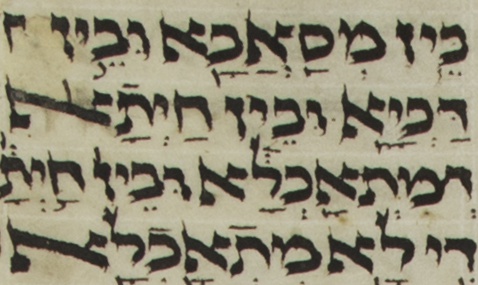 בין מסאבא ובין
דכיא ובין חיתא
דמתאכלא ובין חית
די לא מתאכלא